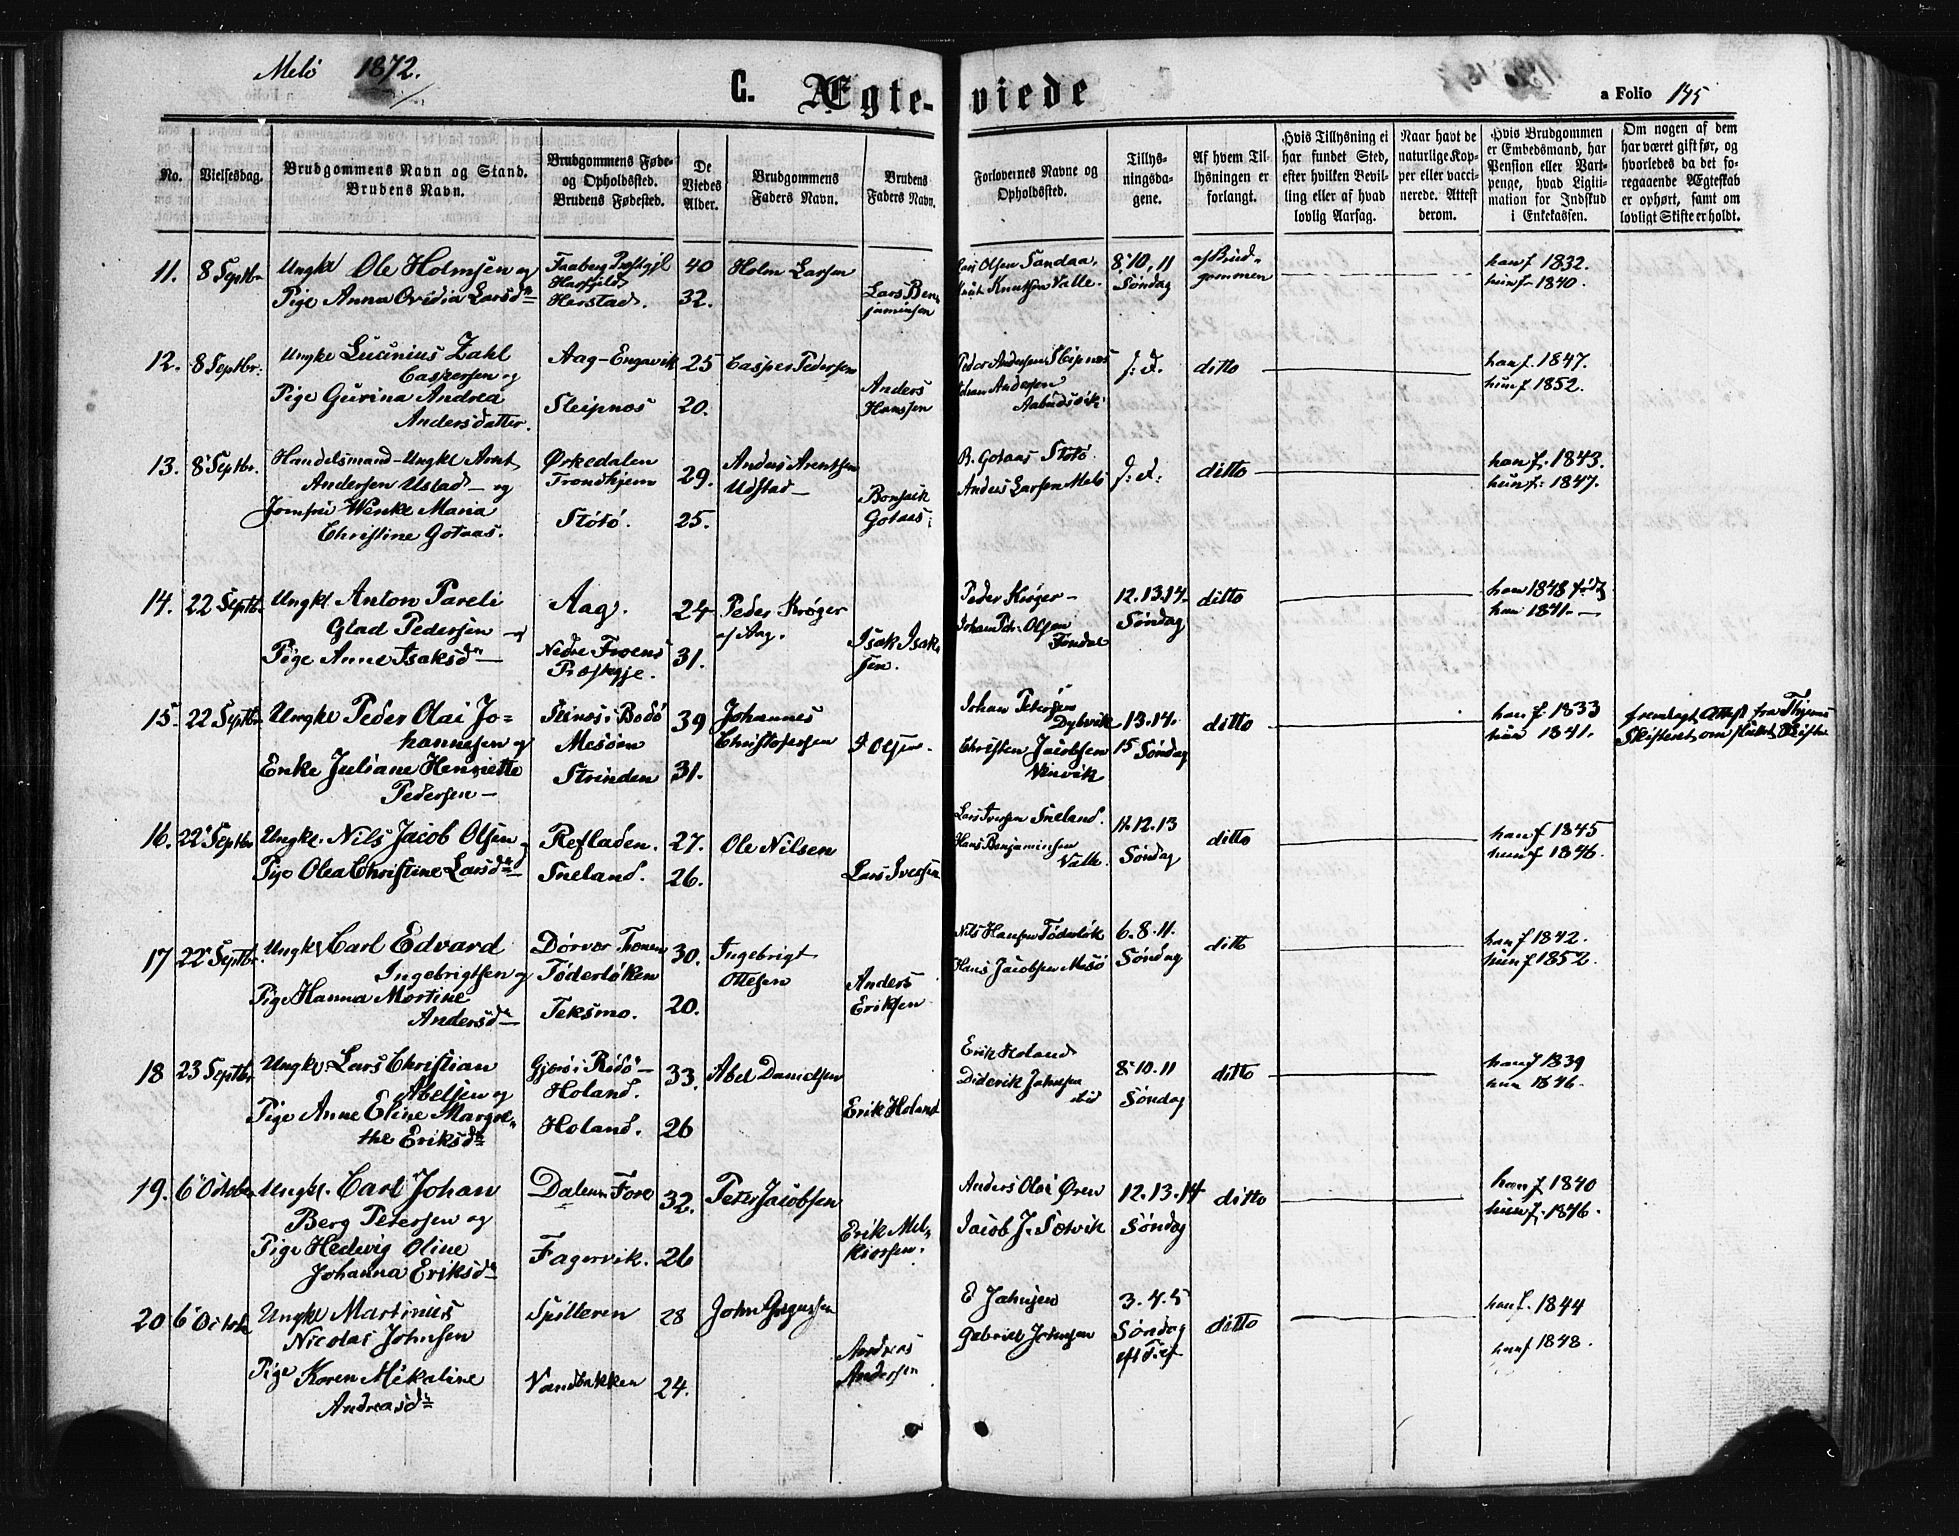 Melö 1872.
C. Ægte-viede
a Folio 145
No.
Vielsesdag.
Brudgommens Navn og Stand.
Brudens Navn.
Brudgommens Føde-
og Opholdssted.
Brudens Fødested.
De
Viedes
Alder.
Brudgommens
Faders Navn.
Brudens
Faders Navn.
Forlovernes Navne og
Opholdssted.
Tillys-
ningsda-
gene.
Af hvem Til-
lysningen er
forlangt.
Hvis Tillysning ei
har fundet Sted,
efter hvilken Bevil-
ling eller af hvad
lovlig Aarsag.
Naar havt de
naturlige Kop-
per eller vacci-
nerede. Attest
derom.
Hvis Brudgommen
er Embedsmand, har
Pension eller Vart-
penge, hvad Ligiti-
mation for Indskud
i Enkekassen.
Om nogen af dem
har været gift før, og
hvorledes da det fo-
regaaende Ægteskab
er ophørt, samt om
lovligt Skifte er holdt.
11. 8 Septbr Ungkl Ole Holmsen og
Pige Anna Ovidia Larsd
Faaberg Prestgjl
Herstad.
40
32.
Holm Larsen
Lars Ben
jaminsen
Olsen Sandaa,
Knutsen Valle.
8. 10, 11
Søndag
af Brud-
gommen
han f 1832.
hun f 1840.
12. 8 Septbr. Ungkl Lucinius Zahl
Caspersen og
Pige Gurina Andrea
Andersdatter.
Aag-Engavik
Sleipnes
25
20.
Casper Pedersen
Anders
Hanssen
Peder Andersen Sleipnes
Johan Andersen
J: d.
ditto
han f. 1847.
hun f. 1852.
13. 8 Septbr. Handelsmand-Ungkl Arnt
Andersen Ustad og
Jomfru Wenke Maria
Christine Gotaas.
Ørkedalen
Trondhjem
Støtø.
29.
25.
Anders Arentsen
Udstad
Bonsak
Gotaas
R. Gotaas Støtø
Anders Larsen Melö
J: d:
ditto
han f. 1843.
hun f: 1847.
14. 22 Septbr Ungkl. Anton Pareli
Glad Pedersen og
Pige Anne Isaksd
Aag.
Nedre Froens
Præstegje.
24
31.
Peder Krøger
af Aag.
Isak Isak
sen.
Peder Krøger
Johan Petr. Olsen
Fondal
12. 13. 14.
Søndag
ditto
han 1848 født
hun 1841.
15. 22 Septbr Ungkl Peder Olai Jo-
hannesen og
Enke Juliane Henriette
Pedersen
Steinos i Bodø
Mesøen
Strinden
39
31.
Johannes
Christofersen
P Olsen.
Johan Petersen
Dybvik
Christen Jacobsen
13. 14.
15 Søndag
ditto
han f. 1833
hun 1841.
fremlagt Attest fra Thjems
Skifteret om sluttet Skifte
16. 22 Septbr Ungkl. Nils Jacob Olsen og
Pige Olea Christine Larsd
Refladen.
Sneland.
27.
26.
Ole Nilsen
Lars Iversen
Lars Iversen Sneland.
Hans Benjaminsen
Valle.
11. 12. 13
Søndag
ditto
han f 1845
hun f 1846.
17 22 Septbr. Ungkl Carl Edvard
Ingebrigtsen og
Pige Hanna Mortine
Andersd
Dørvær Trænen
Tøderløken
Teksmo.
30.
20.
Ingebrigt
Ottesen
Anders
Eriksen
Nils Hansen Tøderløk
Hans Jacobsen Mesø
6. 8. 11.
Søndag
ditto
han f 1842.
hun f 1852.
18 23 Septbr Ungkl Lars Christian
Abelsen og
Pige Anne Eline Margre-
the Eriksd
Gjærøi Rødø
Holand.
Holand.
33.
26
Abel Danielsen
Erik Holand
Erik Holand
Diderik Johnsen
ibid
8. 10. 11
Søndag
ditto
han f 1839
hun 1846.
19. 6 October Ungkl. Carl Johan
Berg Petersen og
Pige Hedevig Oline
Johanna Eriksd
Dalen Fore
Fagervik.
32.
26
Peter Jacobsen
Erik Mel-
kiorsen.
Anders Olai Øren
Jacob J. Sætvik
12. 13. 14
Søndag
ditto
han f 1840
hun f. 1846.
20 6 Octob Ungkl Martinus
Nicolai Johnsen
Pige Karen Mikaline
Andreasd
Spilderen
Vandbakken
28
24.
John
Andreas
Andersen
E Johnsen
Gabriel Johnsen
3. 4. 5
Søndag
ditto
han f. 1844
hun f 1848.